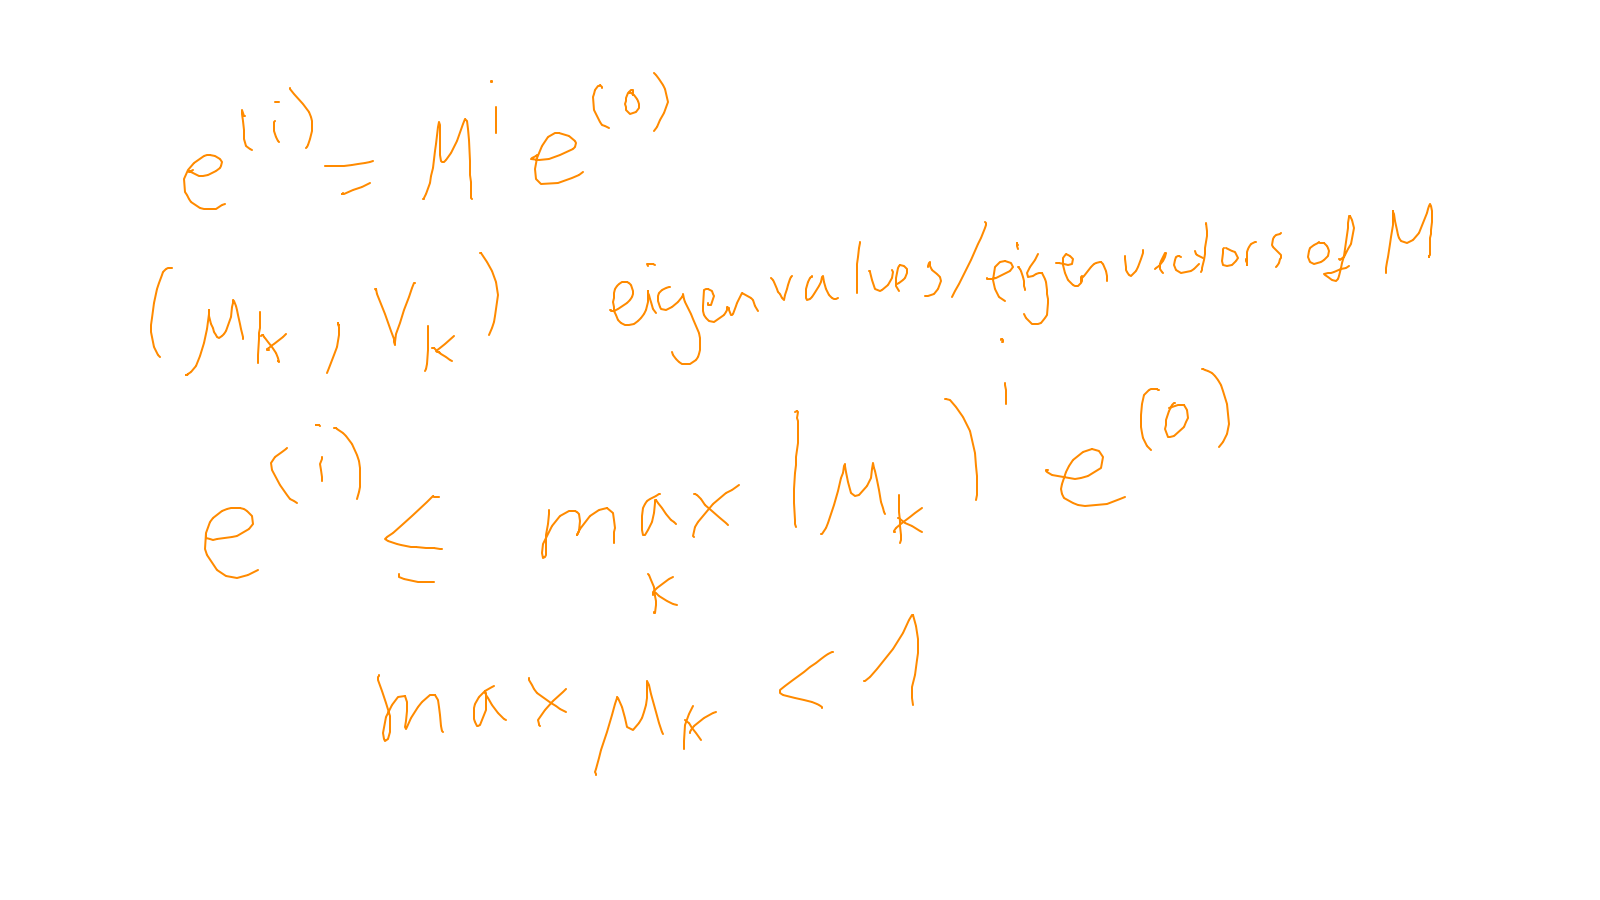 e^(i) = M^i e^(0)
(μ_k, v_k) eigenvalues/eigenvectors of M
e^(i) ≤ max_k |μ_k|^i e^(0)
max μ_k < 1